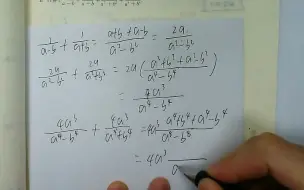 1/(a-b) + 1/(a+b) = (a+b+a-b)/(a²-b²) = 2a/(a²-b²)
2a/(a²-b²) + 2a/(a²+b²) = 2a((a²+b²+a²-b²)/(a⁴-b⁴))
= 4a³/(a⁴-b⁴)
4a³/(a⁴-b⁴) + 4a³/(a⁴+b⁴) = 4a³ (a⁴+b⁴+a⁴-b⁴)/(a⁸-b⁸)
= 4a³